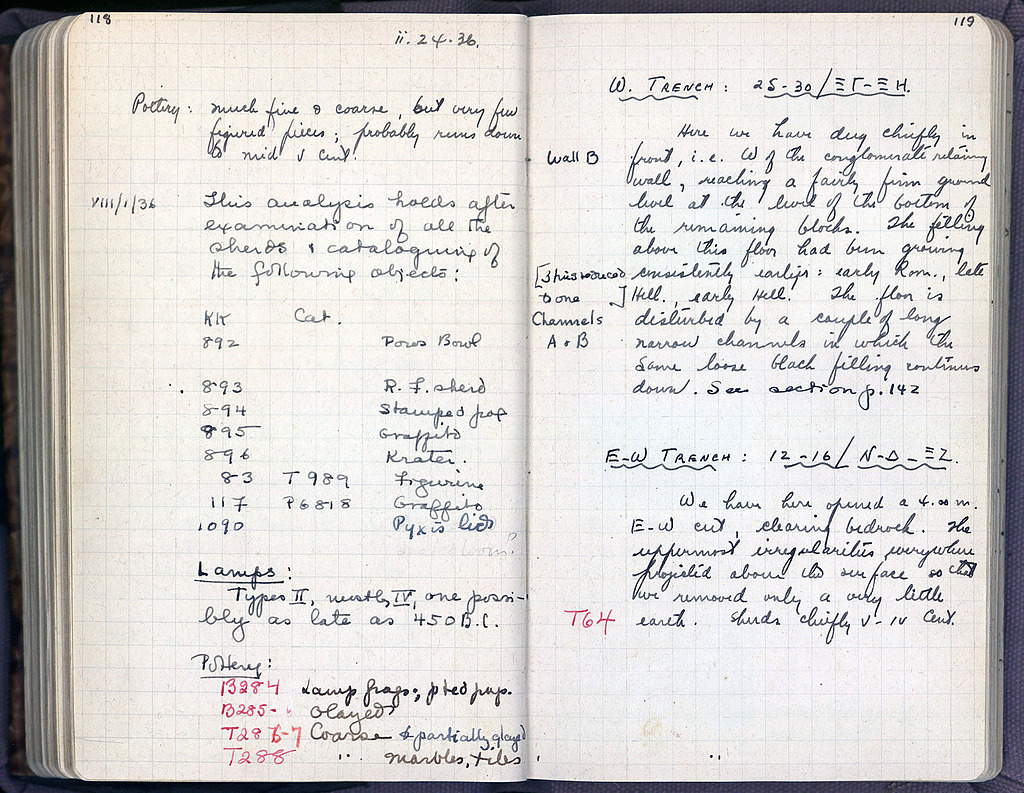 118
ii. 24. 36.
Pottery: much fine & coarse, but very few
figured pieces; probably runs down
to mid V cent.
VIII/1/36 This analysis holds after
examination of all the
sherds & cataloguing of
the following objects:
KK Cat.
892 Poros Bowl
893 R. F. sherd
894 Stamped
895 Graffito
896 Krater.
83 T989 Figurine
117 P6818 Graffito
1090 Pyxis lid
Lamps:
Types II, mostly IV, one possi-
bly as late as 450 B.C.
Pottery:
B284 Lamp frags; pted pap.
B285- Glazed
T286-7 Coarse & partially glazed
T288 " marbles, tiles
119
W. TRENCH: 25-30/ΞΓ-ΞH.
Here we have dug chiefly in
Wall B front, i.e. W of the conglomerate retaining
wall, reaching a fairly firm ground
level at the level of the bottom of
the remaining blocks. The filling
above this floor had been growing
[This reduced consistently earlier: early Rom., late
to one ] Hell., early Hell. The floor is
Channels disturbed by a couple of long
A & B narrow channels in which the
same loose black filling continues
down. See section p. 142
E-W TRENCH: 12-16/ N-D - ΞZ.
We have here opened a 4.00 m.
E-W cut, clearing bedrock. The
uppermost irregularities everywhere
projected above the surface so that
we removed only a very little
T64 earth. Sherds chiefly V-IV Cent.